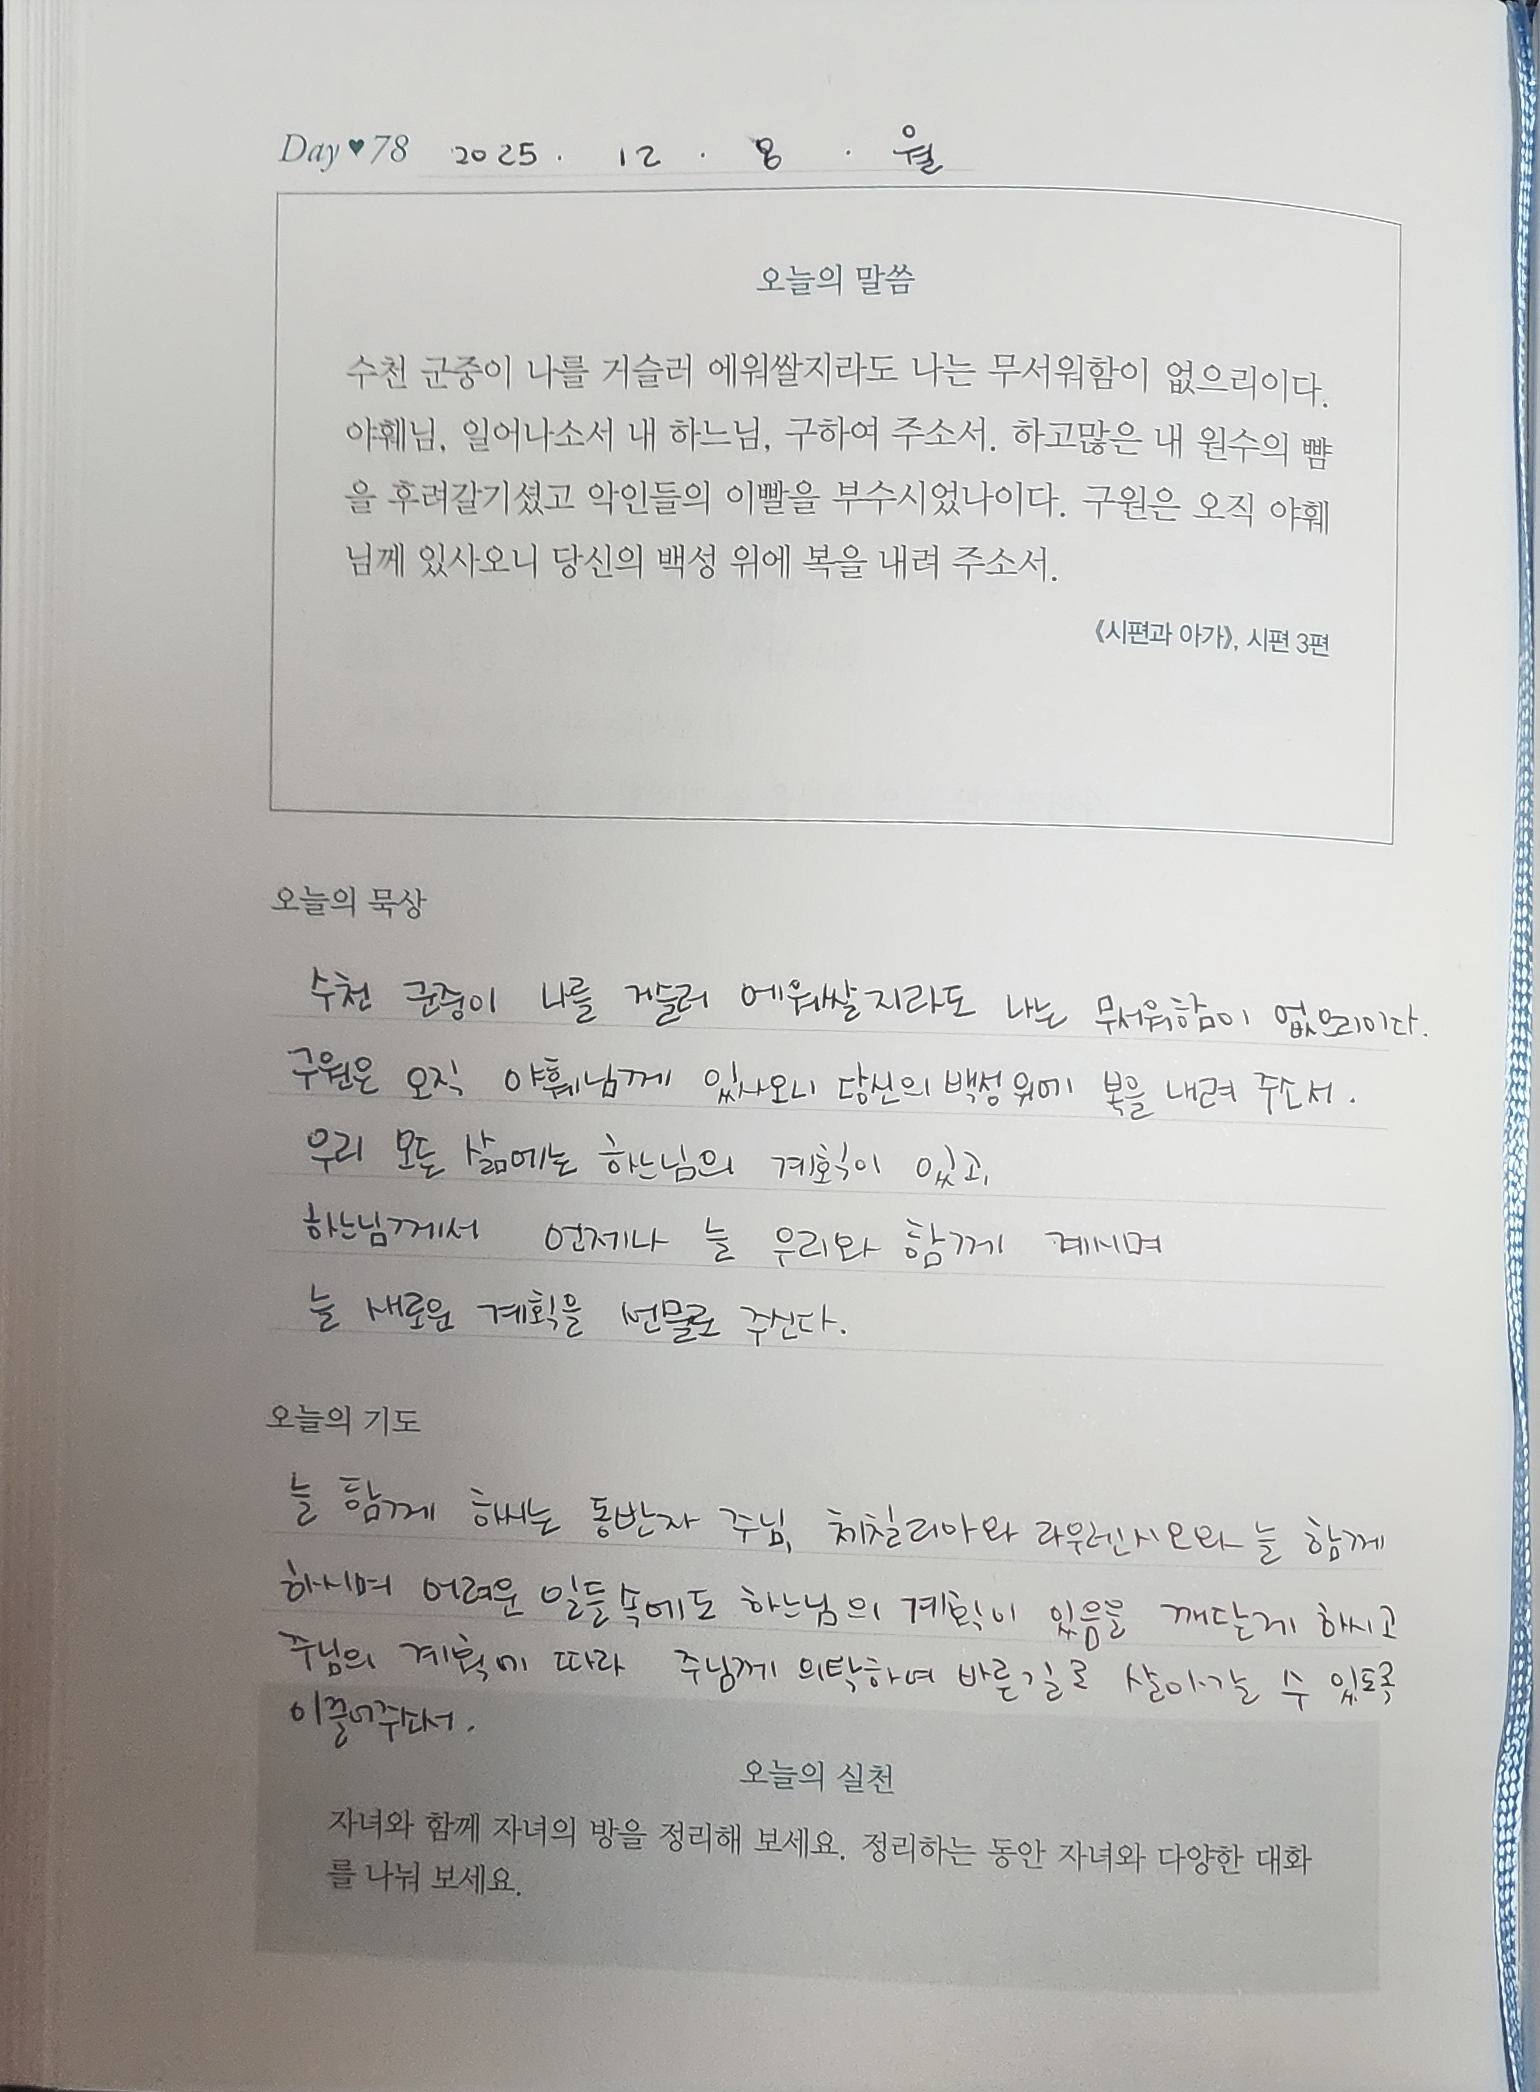 Day ♥ 78 2025. 12. 8. 월
오늘의 말씀
수천 군중이 나를 거슬러 에워쌀지라도 나는 무서워함이 없으리이다.
야훼님, 일어나소서 내 하느님, 구하여 주소서. 하고많은 내 원수의 뺨
을 후려갈기셨고 악인들의 이빨을 부수시었나이다. 구원은 오직 야훼
님께 있사오니 당신의 백성 위에 복을 내려 주소서.
《시편과 아가》, 시편 3편
오늘의 묵상
수천 군중이 나를 거슬러 에워쌀지라도 나는 무서워함이 없으리이다.
구원은 오직 야훼님께 있사오니 당신의 백성 위에 복을 내려 주소서.
우리 모든 삶에는 하느님의 계획이 있고,
하느님께서 언제나 늘 우리와 함께 계시며
늘 새로운 계획을 선물로 주신다.
오늘의 기도
늘 함께 하시는 동반자 주님, 체칠리아와 라우렌시오와 늘 함께
하시며 어려운 일들속에도 하느님의 계획이 있음을 깨닫게 하시고
주님의 계획에 따라 주님께 의탁하여 바른길로 살아갈 수 있도록
이끌어주소서.
오늘의 실천
자녀와 함께 자녀의 방을 정리해 보세요. 정리하는 동안 자녀와 다양한 대화
를 나눠 보세요.